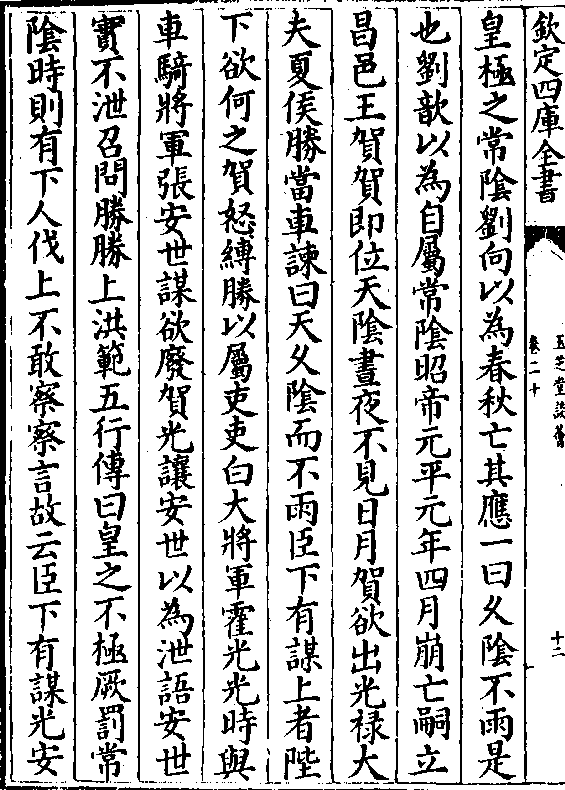 欽定四庫全書
玉芝堂談薈
卷二十
十二
皇極之常陰劉向以為春秋亡其應一曰久陰不雨是
也劉歆以為自屬常陰昭帝元平元年四月崩亡嗣立
昌邑王賀賀即位天陰晝夜不見日月賀欲出光禄大
夫夏侯勝當車諫曰天久陰而不雨臣下有謀上者陛
下欲何之賀怒縛勝以屬吏吏白大將軍霍光光時與
車騎將軍張安世謀欲廢賀光讓安世以為泄語安世
實不泄召問勝勝上洪範五行傳曰皇之不極厥罰常
陰時則有下人伐上不敢察察言故云臣下有謀光安